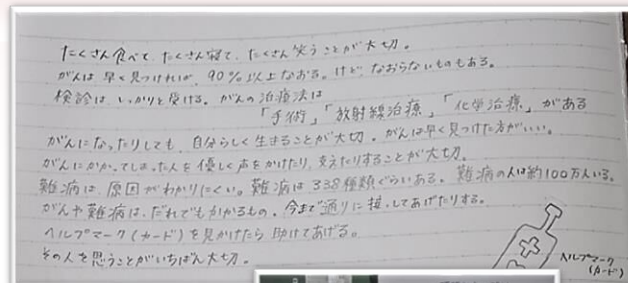 たくさん食べて、たくさん寝て、たくさん笑うことが大切。
がんは早く見つければ、90%以上なおる。けど、なおらないものもある。
検診は、しっかりと受ける。がんの治療法は
「手術」「放射線治療」「化学治療」がある
がんになったりしても、自分らしく生きることが大切。がんは早く見つけた方がいい。
がんにかかってしまった人を優しく声をかけたり、支えたりすることが大切。
難病は、原因がわかりにくい。難病は338種類ぐらいある。難病の人は約100万人いる。
がんや難病は、だれでもかかるもの。今まで通りに接してあげたりする。
ヘルプマーク(カード)を見かけたら助けてあげる。
その人を思うことがいちばん大切。
ヘルプマーク
(カード)